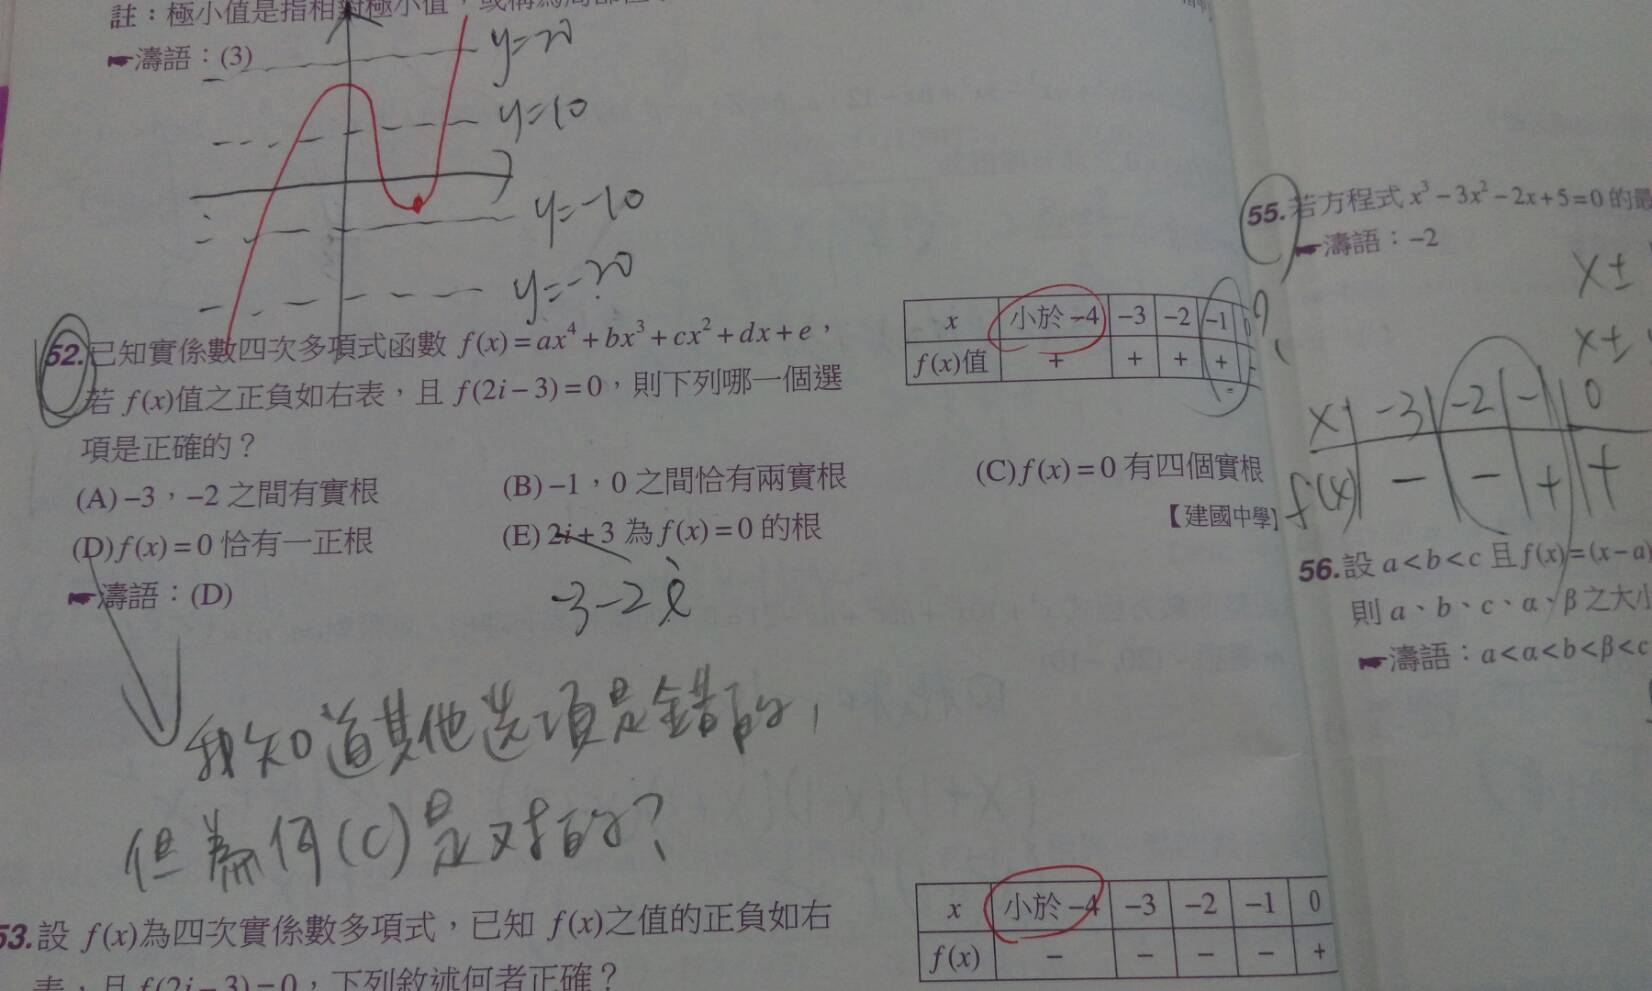 註：極小值是指相對極小值，或稱為局部
濤語：(3)
y=20
y=10
y=-10
y=-20
52.已知實係數四次多項式函數 f(x)=ax⁴+bx³+cx²+dx+e，
若 f(x)值之正負如右表，且 f(2i−3)=0，則下列哪一個選
項是正確的？
x 小於 −4 −3 −2 −1 0
f(x)值 + + + + −
?
(A) −3，−2 之間有實根
(B) −1，0 之間恰有兩實根
(C) f(x)=0 有四個實根
(D) f(x)=0 恰有一正根
(E) 2i+3 為 f(x)=0 的根
【建國中學】
濤語：(D)
-3-2i
我知道其他选項是錯的，
但為何(C)是对的？
53.設 f(x)為四次實係數多項式，已知 f(x)之值的正負如右
表，且 f(2i−3)=0，下列敘述何者正確？
x 小於 −4 −3 −2 −1 0
f(x) − − − − +
55.若方程式 x³−3x²−2x+5=0 的最
濤語：−2
x±
x±
x -3 -2 -1 0
f(x) - - + +
56.設 a<b<c 且 f(x)=(x−a)
則 a、b、c、α、β 之大小
濤語：a<α<b<β<c